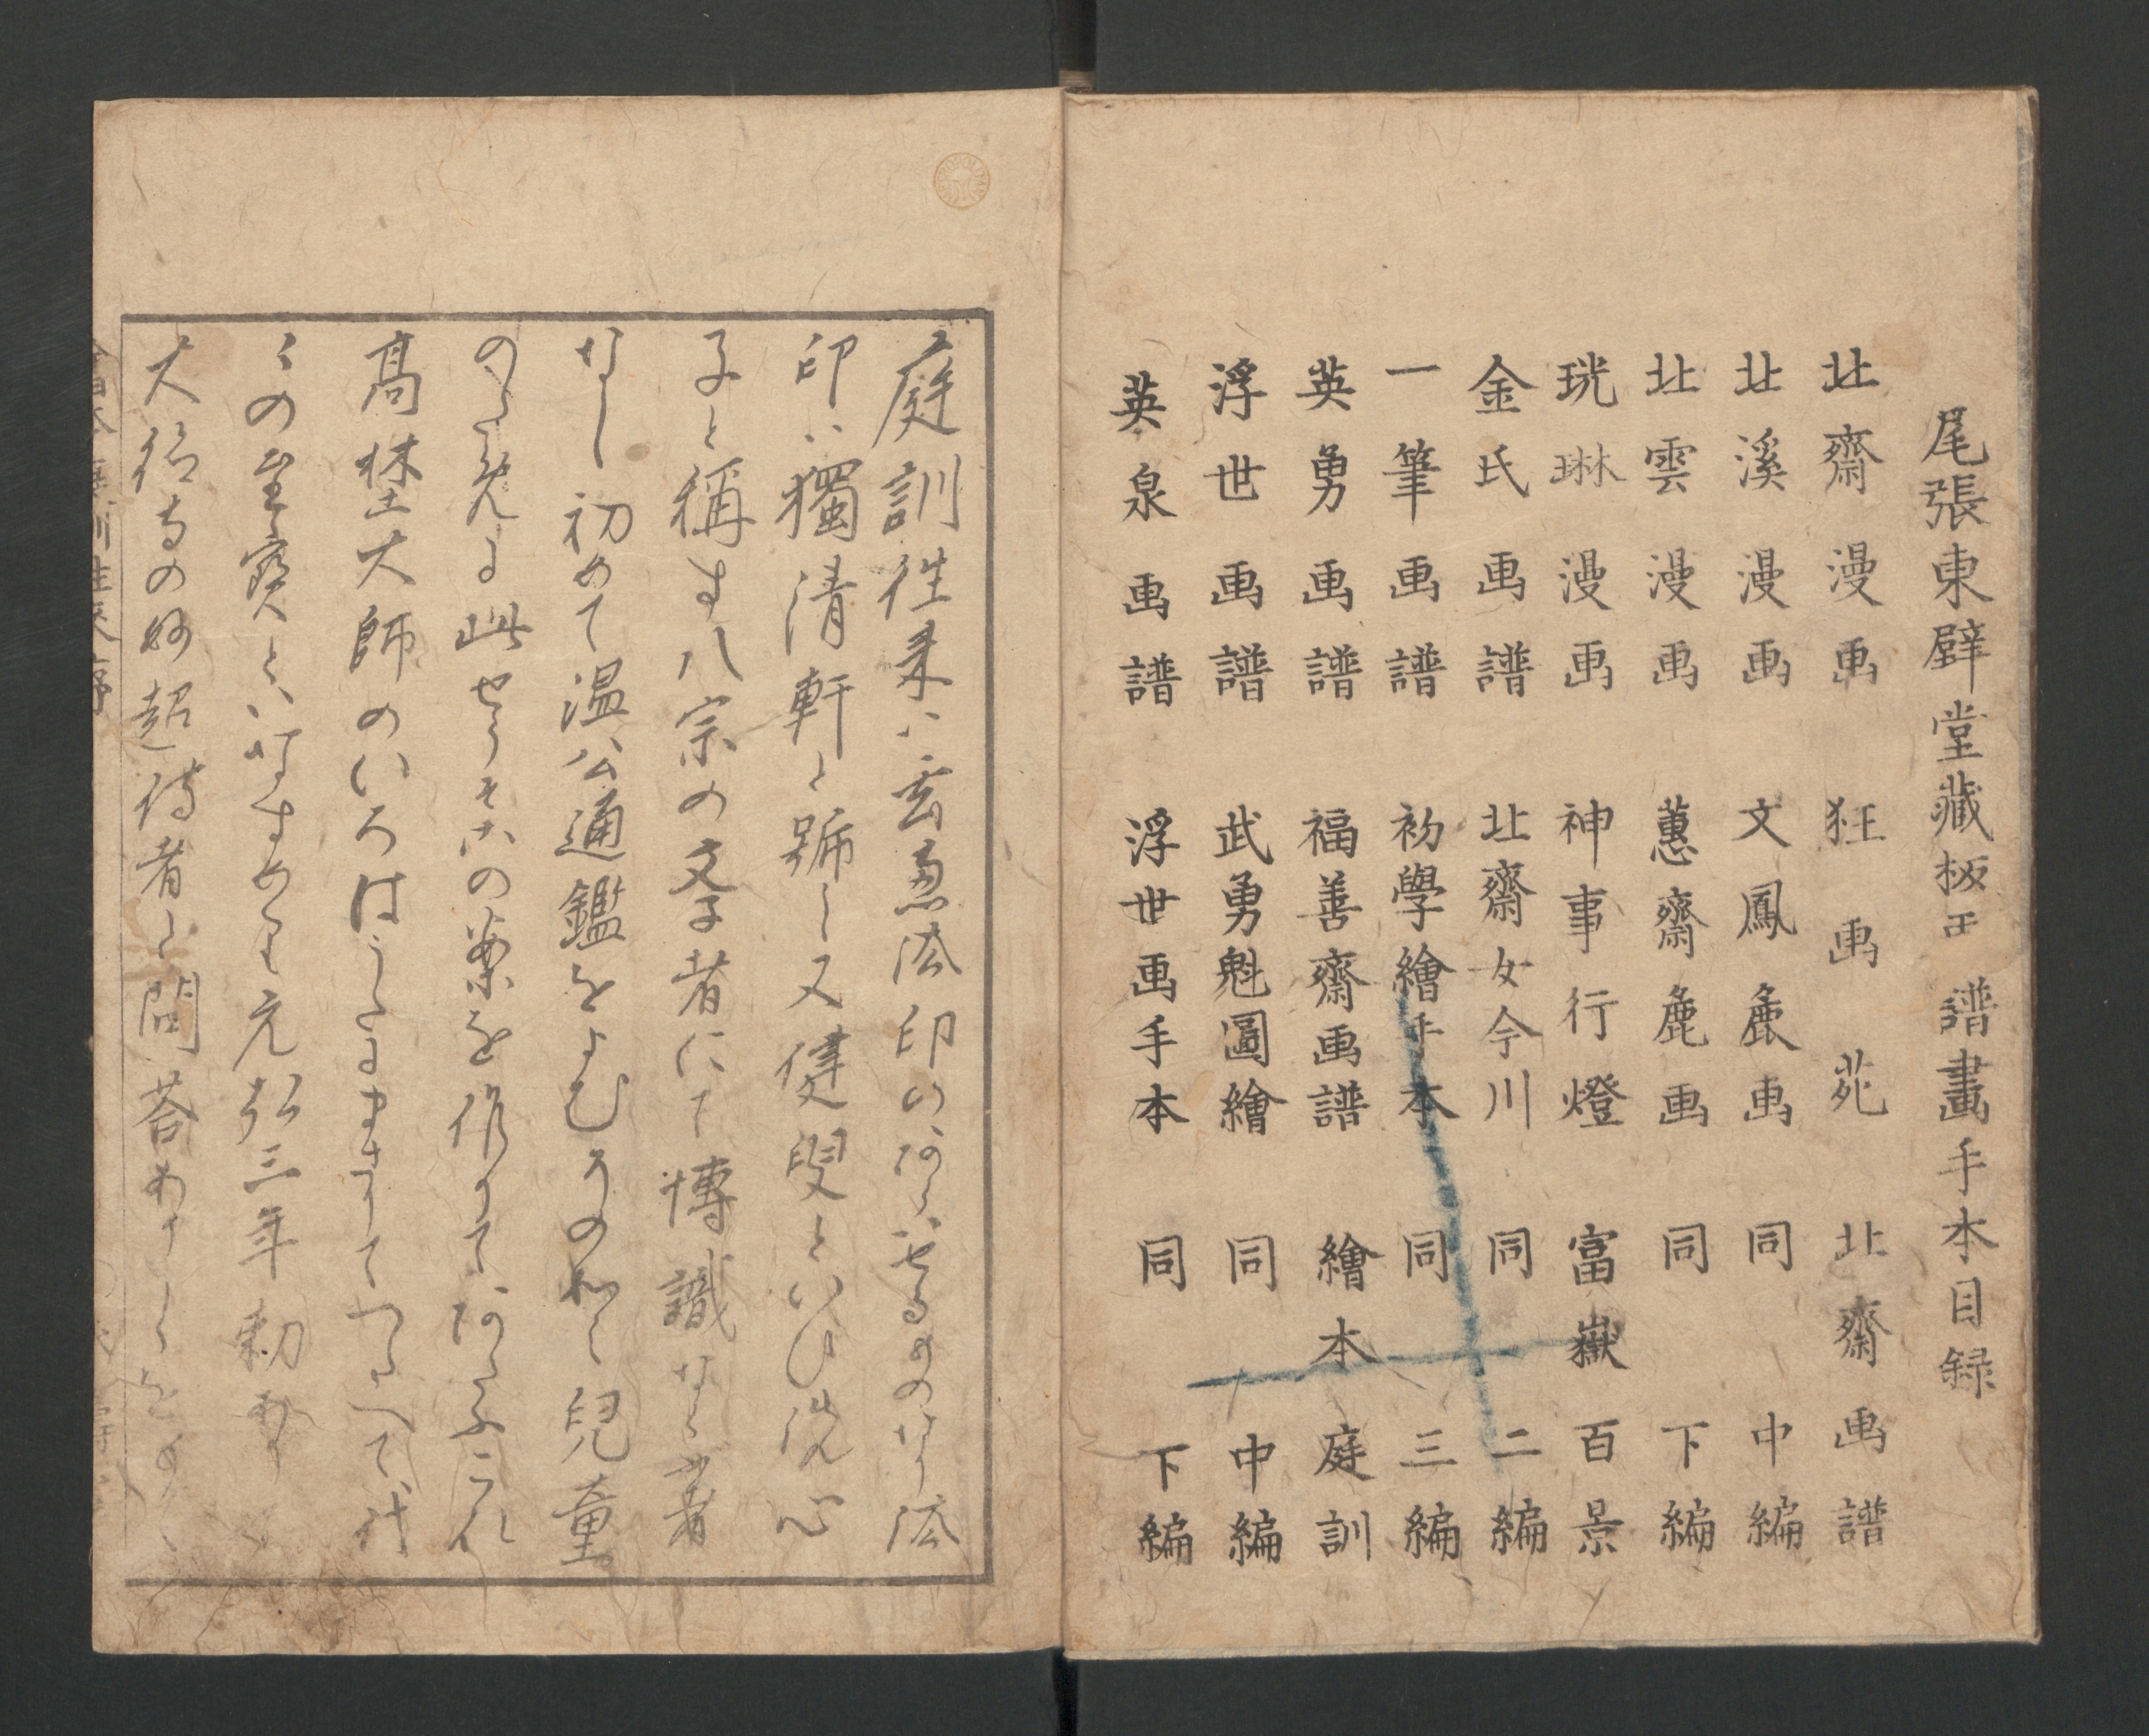 尾張東壁堂藏板 譜畫手本目録
北齋漫画 狂画苑 北齋画譜
北溪漫画 文鳳麁画 同 中編
北雲漫画 蕙齋麁画 同 下編
珖琳漫画 神事行燈 富嶽百景
金氏画譜 北齋女今川 同 二編
一筆画譜 初學繪手本 同 三編
英勇画譜 福善齋画譜 繪本庭訓
浮世画譜 武勇魁圖繪 同 中編
英泉画譜 浮世画手本 同 下編
庭訓往来ハ玄惠法印の なり法
印ハ獨清軒と號し又健叟といひ洗心
子と稱す八宗の文字者にて博識なる者
なし初めて温公通鑑をよむ 兒童
のために此 の業を作りて これ
高埜大師のいろは つたへて代
の至寶と 元弘三年勅あり
大徳寺の妙超侍者と問荅ありし